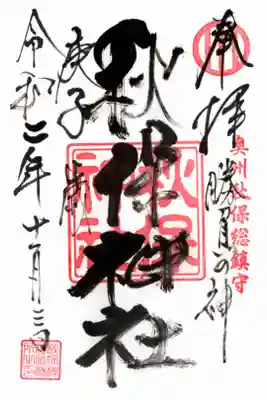 奉拝
勝負の神
奥州秋保総鎮守
秋保神社
秋保神社
庚子歳
令和二年十一月三日